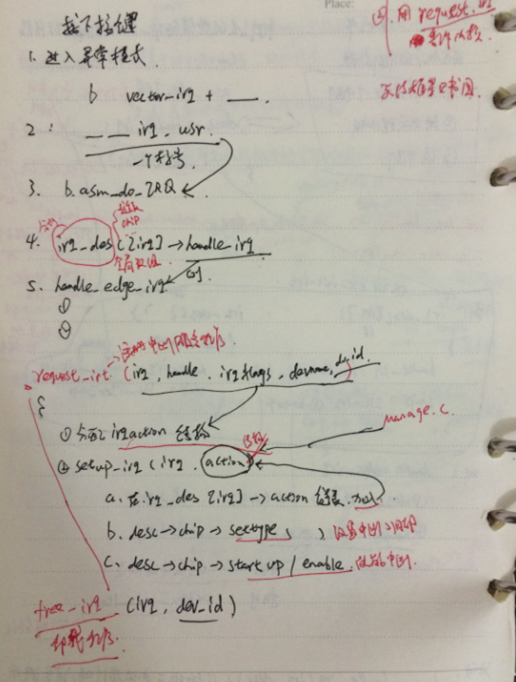 Place:
按下按键
1. 进入异常模式
b vector_irq + __.
2: __ irq_usr.
一个标号
3. b.asm_do_IRQ
4. irq_des[irq]→handle_irq
分析
结构
chip
全局数组
5. handle_edge_irq
①
②
④. 用 request_irq
request_irq (irq, handle, irqflags, devname, dev_id
→注册中断服务程序.
{
①分配irqaction 结构
manage.c.
② setup_irq (irq, action)
a. 在irq_des[irq]→action链表,加入
b. desc→chip→settype, ) 设置中断引脚
c. desc→chip→start up / enable. 使能中断.
free_irq (irq, dev_id)
卸载程序.